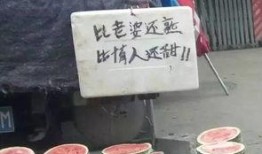 比老婆还熟
比情人还甜!!